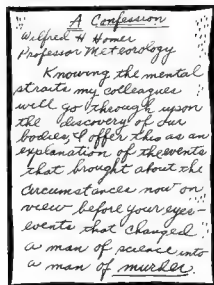 A Confession
Wilfred H Homer
Professor Meteorology
Knowing the mental
straits my colleagues
will go through upon
the discovery of our
bodies, I offer this as an
explanation of the events
that brought about the
circumstances now on
view before your eyes-
events that changed
a man of science into
a man of murder.